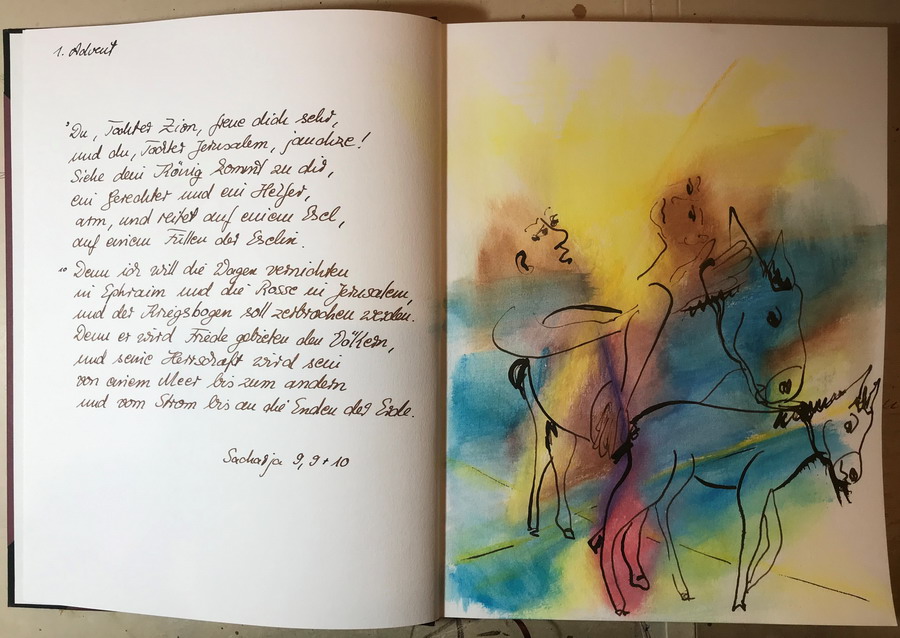 1. Advent
9 Du, Tochter Zion, freue dich sehr,
und du, Tochter Jerusalem, jauchze!
Siehe dein König kommt zu dir,
ein Gerechter und ein Helfer,
arm, und reitet auf einem Esel,
auf einem Füllen der Eselin.
10 Denn ich will die Wagen vernichten
in Ephraim und die Rosse in Jerusalem,
und der Kriegsbogen soll zerbrochen werden.
Denn er wird Friede gebieten den Völkern,
und seine Herrschaft wird sein
von einem Meer bis zum andern
und vom Strom bis an die Enden der Erde.
Sacharja 9, 9+10